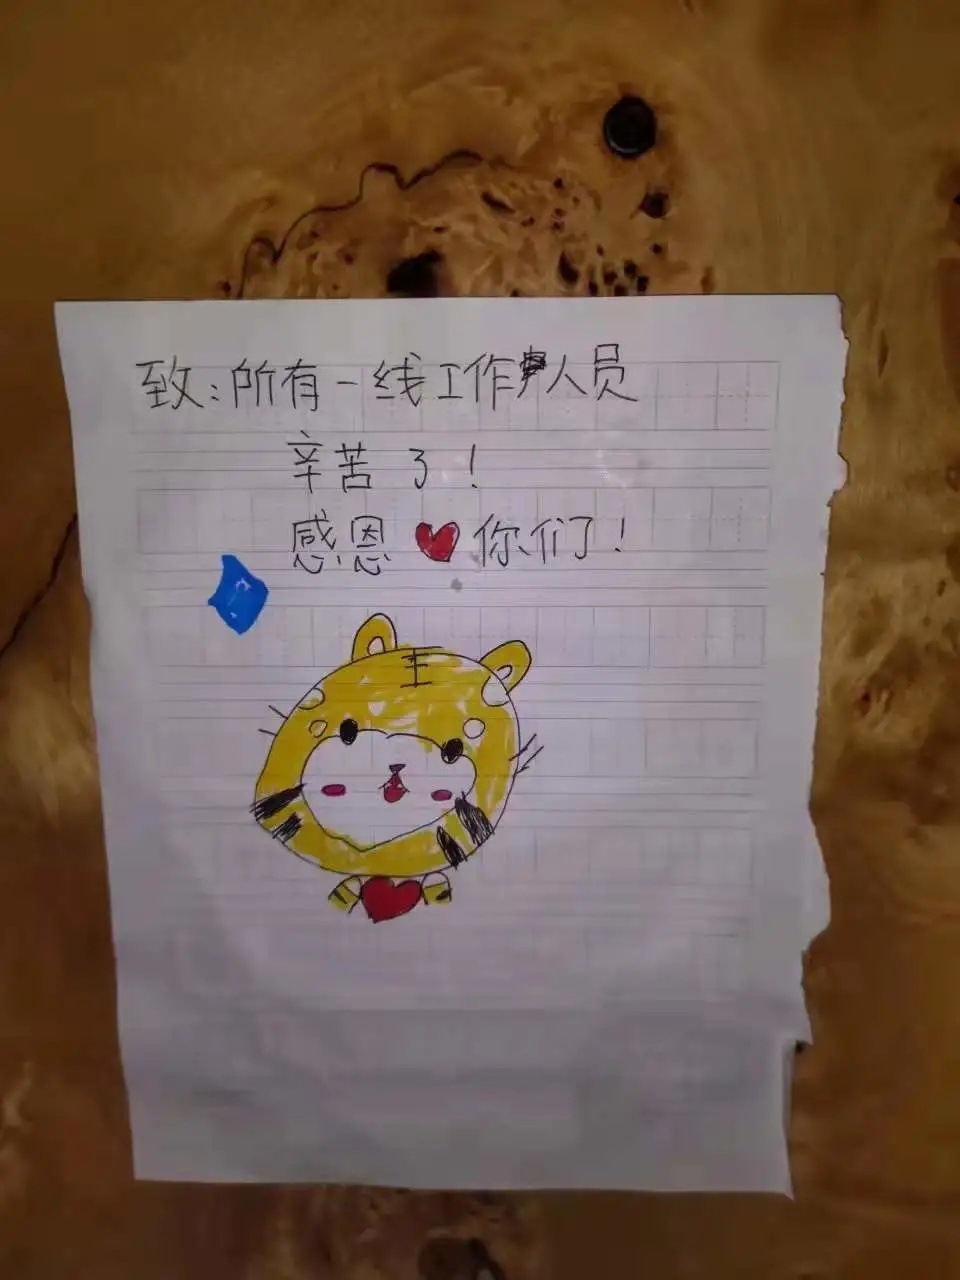 致:所有一线工作人员
辛苦了!
感恩❤你们!
王